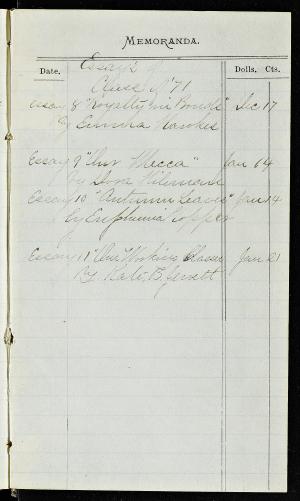 MEMORANDA.
Date. Dolls. Cts.
Essays
Class of '71
Essay 8 "Royalty in " Dec 17
By Hawkes
Essay 9 "Our Mecca" Jan 14
By Dora Hileman
Essay 10 "Autumn Leaves" Jan 14
by Euphemia Copper
Essay 11 "Our Working Classes Jan 21
By Kate B. Jewett